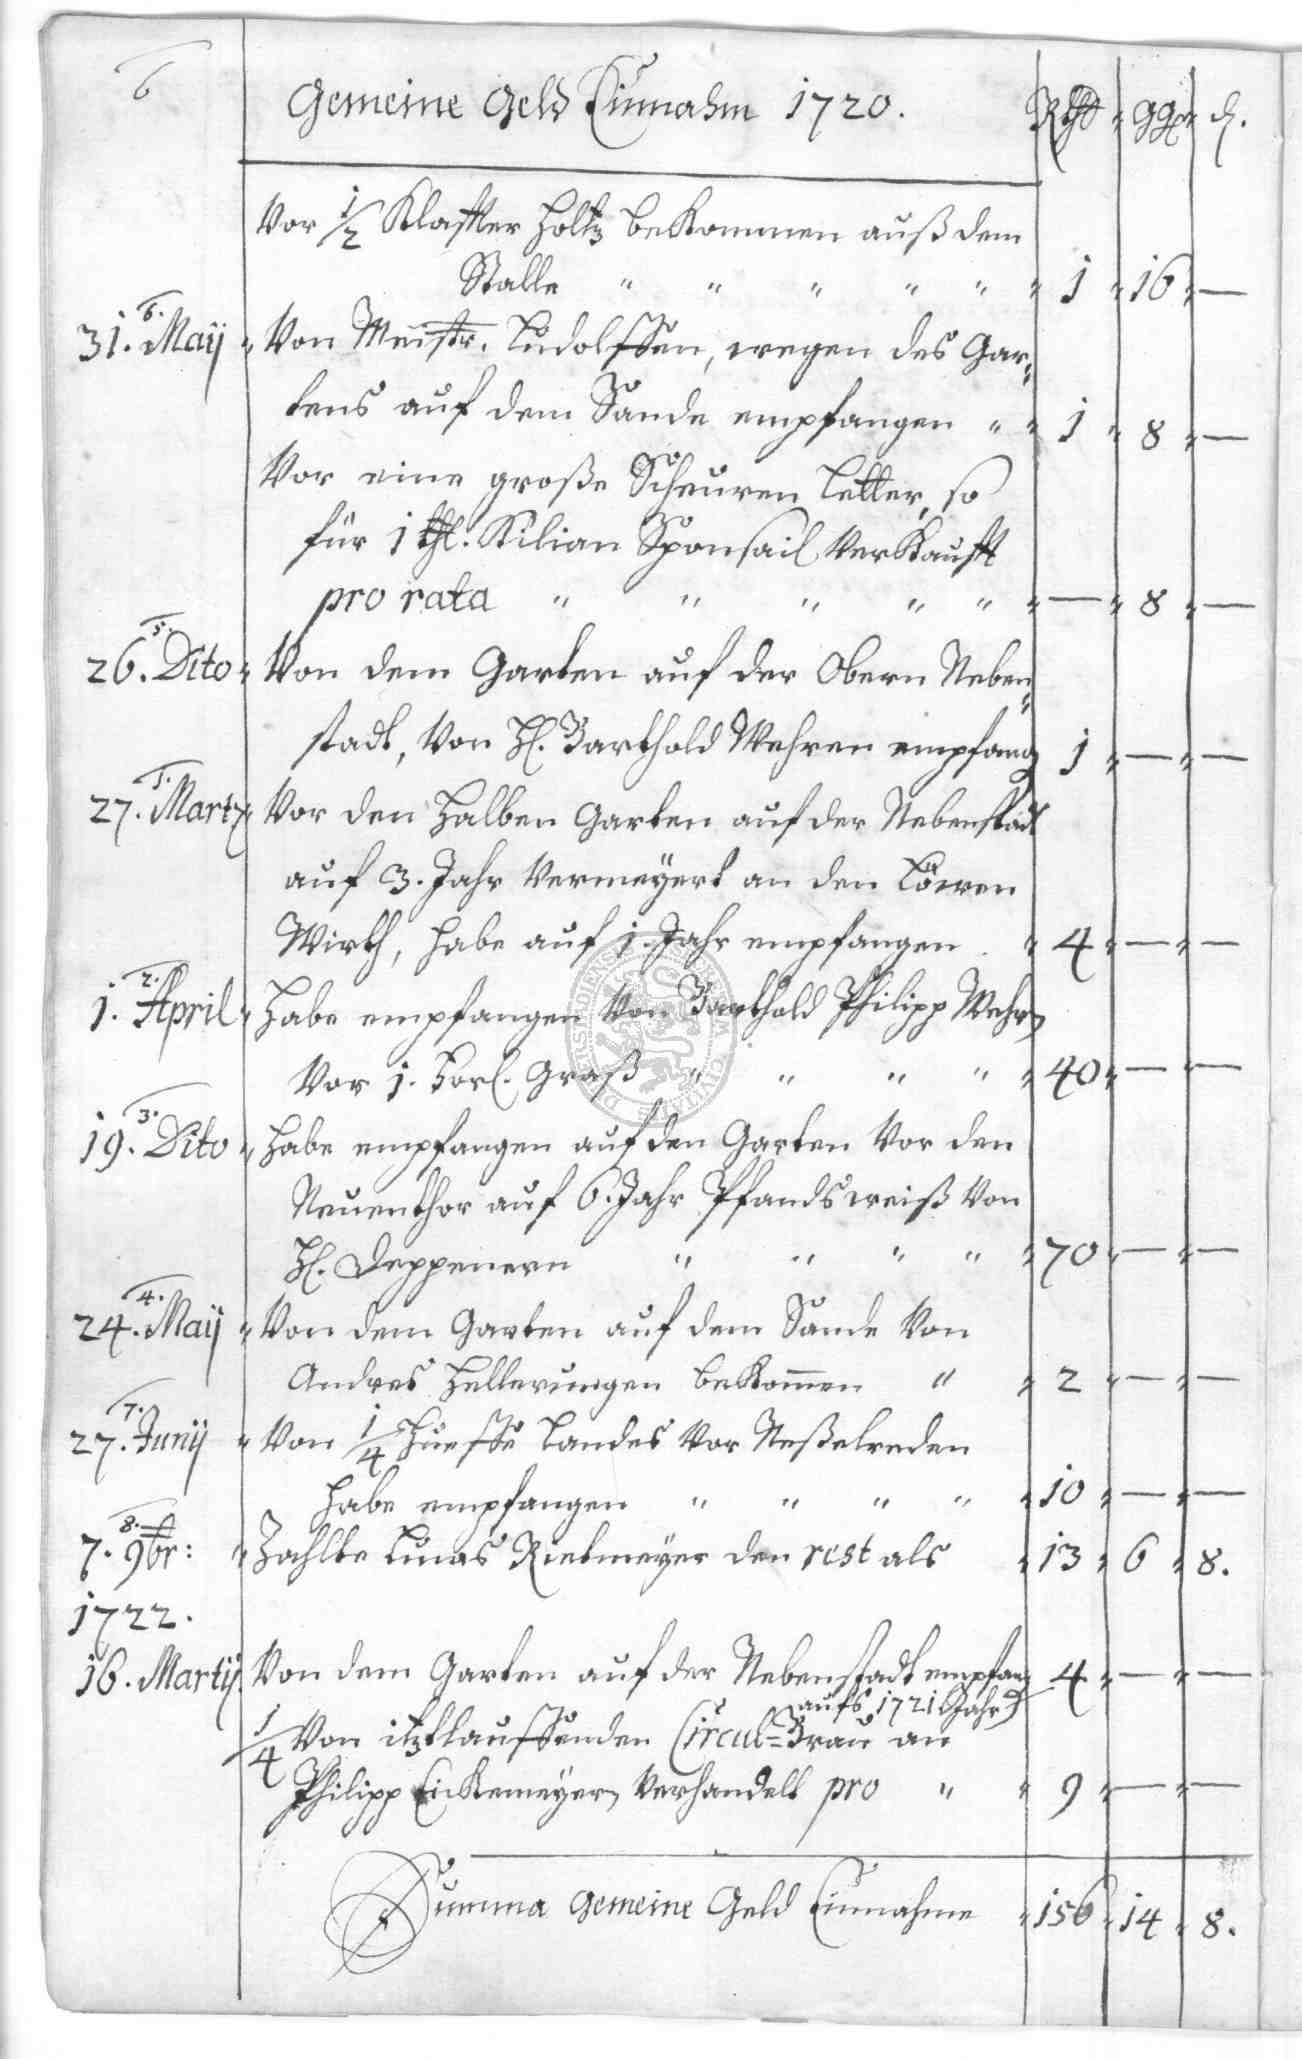 6
Gemeine Geld Einnahm 1720. Rthl ggr d.
Vor 1/2 Klaffter Holtz bekommen auß dem
Stalle " " " " " " 1 " 16 " —
6.
31. Maij " Von Meistr. Ludolffen, wegen des Gar„
tens auf dem Sande empfangen " " 1 " 8 " —
Vor eine große Scheuren Letter, so
für 1 thl. Kilian Sponsail Verkaufft
pro rata " " " " " " — " 8 " —
5.
26. Dito " Von dem Garten auf der Obern Neben„
stadt, Von H. Barthold Wehren empfang 1 " — " —
1.
27. Marty " Vor den Halben Garten auf der Nebenstadt
auf 3. Jahr Vermeyert an den Löwen
Wirth, habe auf 1. Jahr empfangen " 4 " — " —
2.
1. April " Habe empfangen Von Barthold Philipp Wehrn
Vor 1. Graß " " " " " 40 " — " —
3.
19. Dito " Habe empfangen auf den Garten Vor den
Neuenthor auf 6. Jahr Pfandsweiß Von
H. Deppenern " " " " " 70 " — " —
4.
24. Maij " Von dem Garten auf dem Sande Von
Andres Hellerungen bekommen " " 2 " — " —
7.
27. Junij " Von 1/4 Hueffe Landes Vor Neßelreden
habe empfangen " " " " " 10 " — " —
8.
7. 9br: " Zahlte Lucas Rietmeyer den rest als " 13 " 6 " 8.
1722.
16. Martij Von dem Garten auf der Nebenstadt empfang 4 " — " —
aufs 1721 Jahr
1/4 Von itztlauffenden Circul-Brau an
Philipp Eickemeyern Verhandelt pro " " 9 " — " —
Summa Gemeine Geld Einnahme " 156 " 14 " 8.